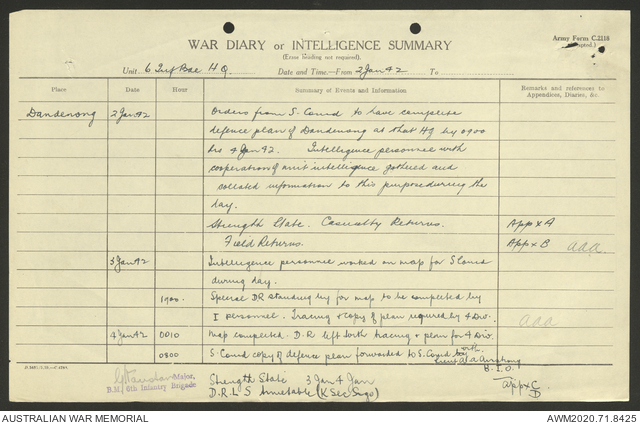 Army Form C.2118
(Adapted.)
WAR DIARY or INTELLIGENCE SUMMARY
(Erase heading not required).
Unit 6 Inf Bde H.Q. Date and Time—From 2 Jan 42 To
Place Date Hour Summary of Events and Information Remarks and references to
Appendices, Diaries, &c.
Dandenong 2 Jan 42 Orders from S. Comd to have complete
defence plan of Dandenong at that HQ by 0900
hrs 4 Jan 42. Intelligence personnel with
cooperation of unit intelligence gathered and
collated information to this purpose during the
day.
Strength State. Casualty Returns. App x A
Field Returns. App x B aaa
3 Jan 42 Intelligence personnel worked on map for S Comd
during day.
1700 Special DR standing by for map to be completed by
I personnel. Tracing + copy of plan required by 4 Div. aaa
4 Jan 42 0010 Map completed. D.R left with tracing + plan for 4 Div.
0800 S Comd copy of defence plan forwarded to S. Comd with
Lieut A. A. Armstrong
B.I.O.
Major,
B.M. 6th Infantry Brigade
Strength State 3 Jan 4 Jan App x C
D.R.L.S timetable (K Sec Sigs) D
AUSTRALIAN WAR MEMORIAL
AWM2020.71.8425